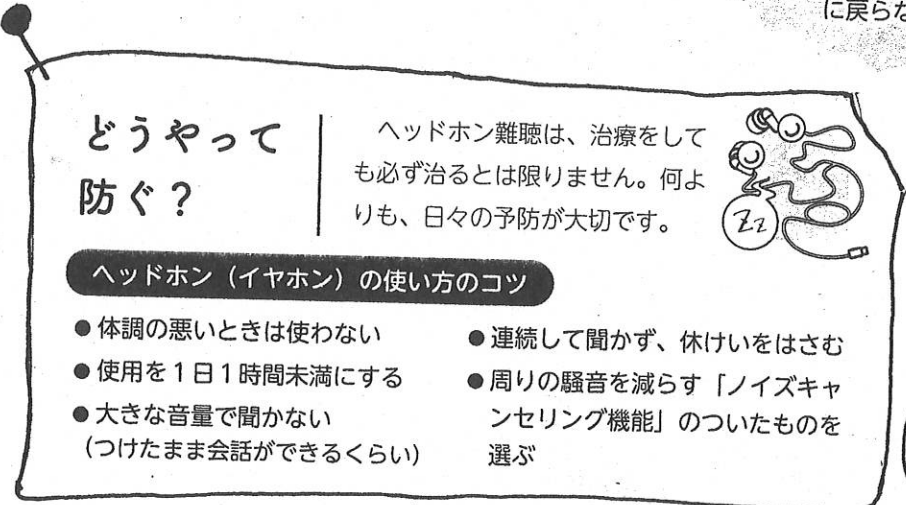 に戻らな
どうやって
防ぐ？
ヘッドホン難聴は、治療をして
も必ず治るとは限りません。何よ
りも、日々の予防が大切です。
Zz
ヘッドホン（イヤホン）の使い方のコツ
●体調の悪いときは使わない
●使用を1日1時間未満にする
●大きな音量で聞かない
（つけたまま会話ができるくらい）
●連続して聞かず、休けいをはさむ
●周りの騒音を減らす「ノイズキャ
ンセリング機能」のついたものを
選ぶ